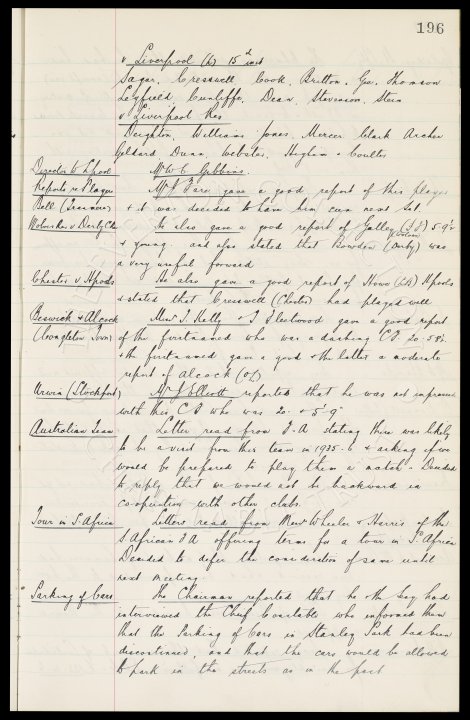 196
v Liverpool (h) 15th inst
Sagar, Cresswell Cook, Britton, Gee, Thomson
Leyfield, Cunliffe, Dean, Stevenson, Stein
v Liverpool Res
Deighton, Williams Jones, Mercer Clark Archer
Geldard Dunn, Webster, Higham & Coulter
Director to L'pool Mr W C Gibbins.
Reports re Players Mr J Fare gave a good report of this player
Bell (Tranmere) & it was decided to have him seen next Sat.
Wolverton v Derby C He also gave a good report of Galley (I F) 5-9½
& young. and also stated that Bowden (Derby) was
a very useful forward
Chester v H'pools He also gave a good report of Howe (LH) H'pools
& stated that Cresswell (Chester) had played well
Beswick & Alcock Messrs T. Kelly & J Fleetwood gave a good report
(Congleton Town) of the firstnamed who was a dashing C F 20. 5.8½
& the firstnamed gave a good & the latter a moderate
report of Alcock (OL)
Urwin (Stockport) Mr J Elliott reported that he was not impressed
with this C F who was 20. & 5-9"
Australian Team Letter read from F.A stating there was likely
to be a visit from this team in 1935-6 & asking if we
would be prepared to play them a match - Decided
to reply that we would not be backward in
co-operation with other clubs.
Tour in S. Africa Letters read from Messrs Wheeler & Harris of the
S African F A offering terms for a tour in S. Africa
Decided to defer the consideration of same until
next meeting
Parking of Cars The Chairman reported that he & the Secy had
interviewed the Chief Constable who informed them
that the Parking of Cars in Stanley Park had been
discontinued, and that the cars would be allowed
to park in the streets as in the past